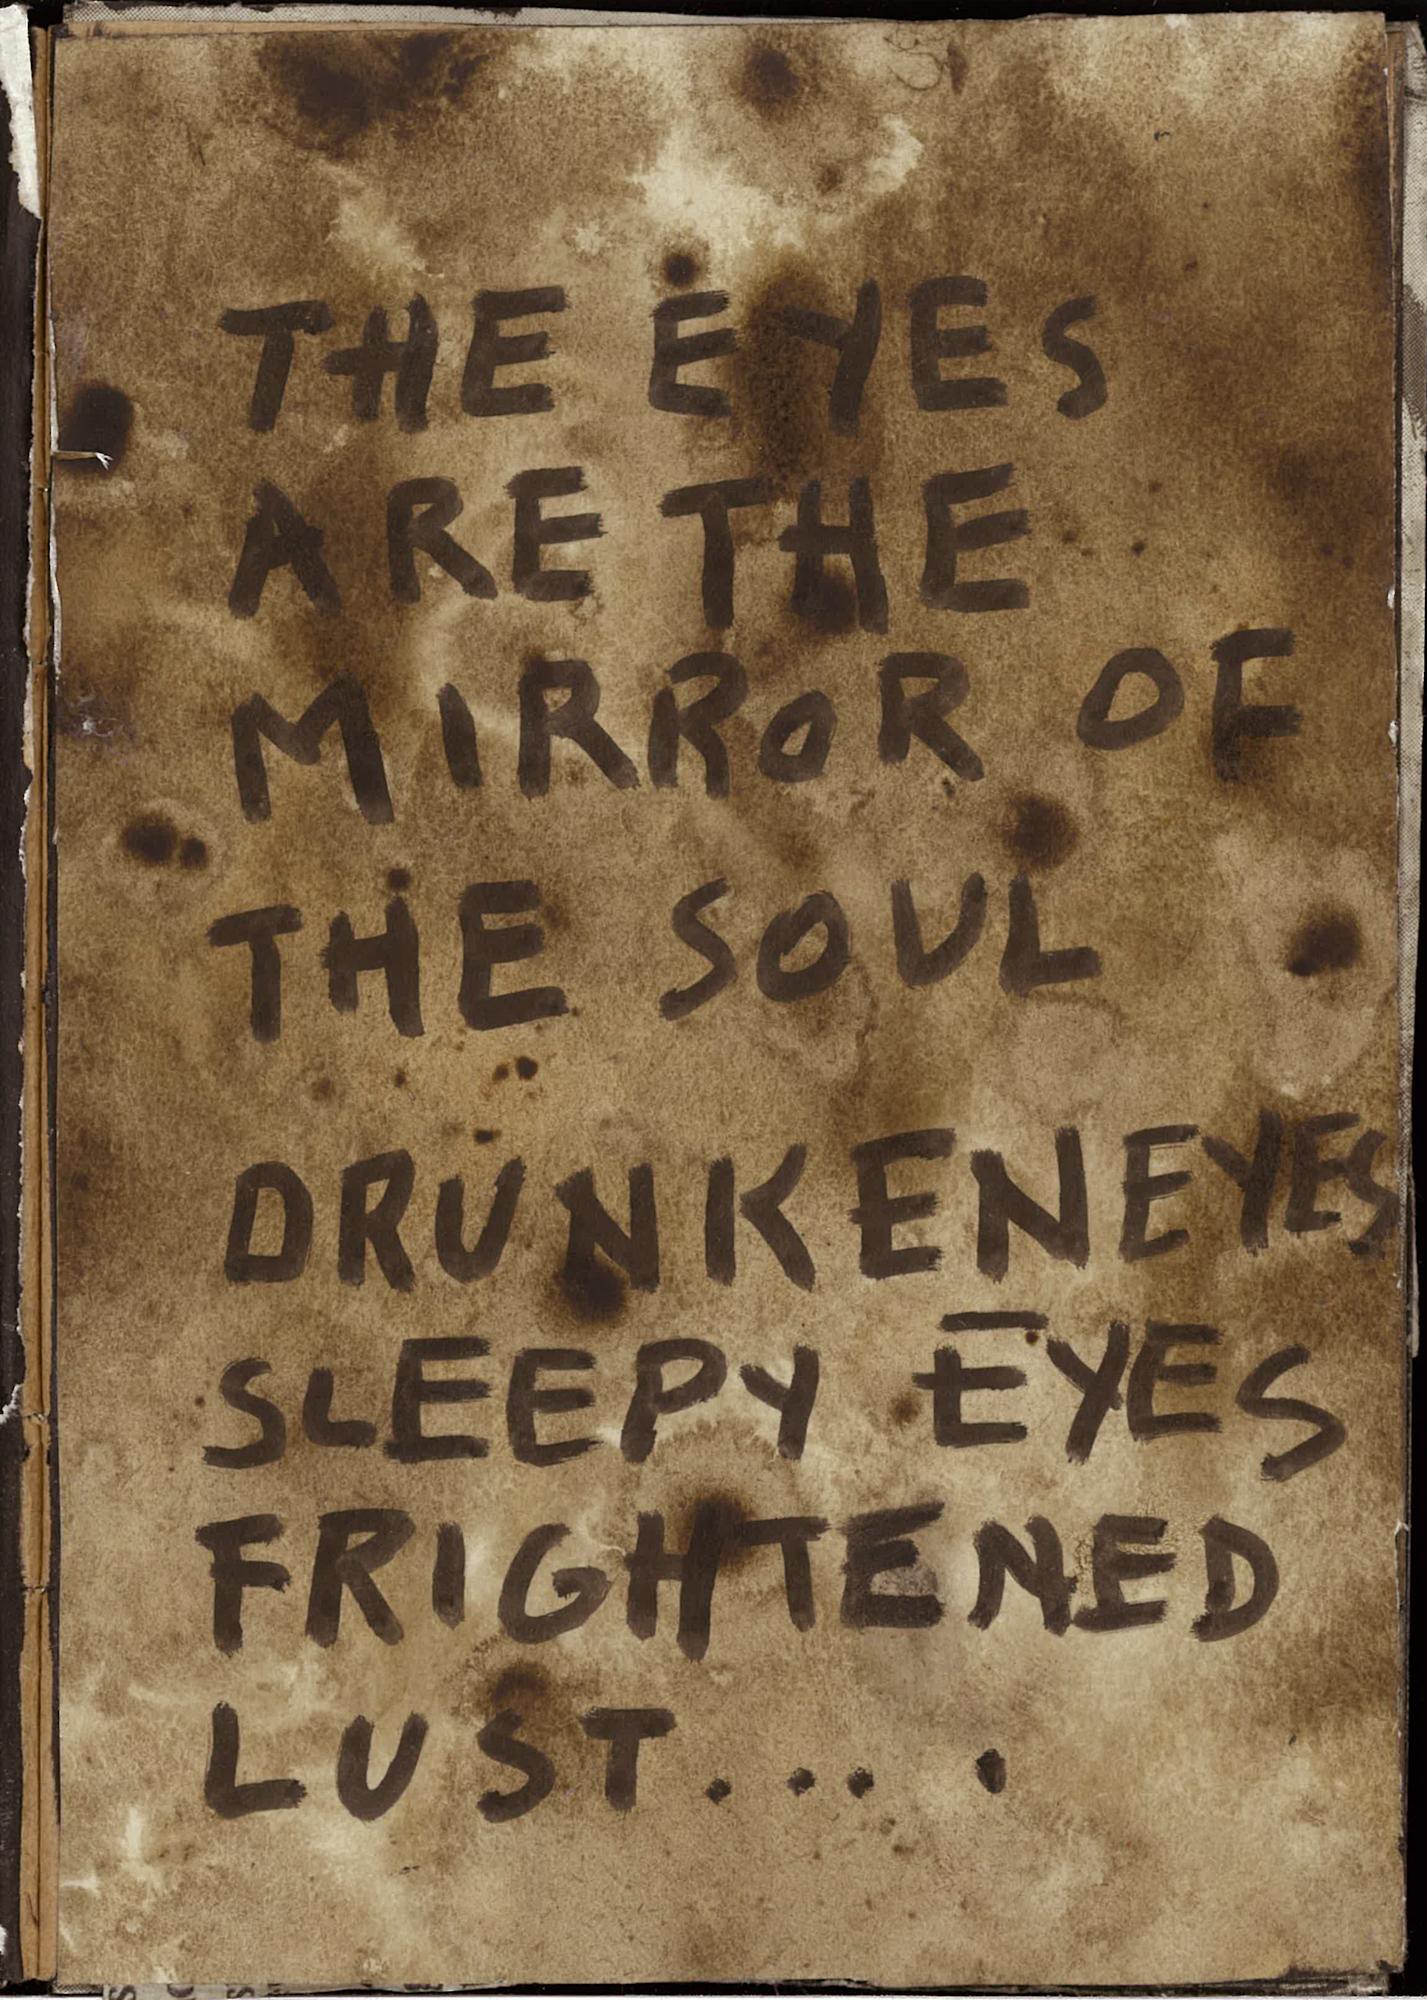 THE EYES
ARE THE
MIRROR OF
THE SOUL
DRUNKEN EYES
SLEEPY EYES
FRIGHTENED
LUST....